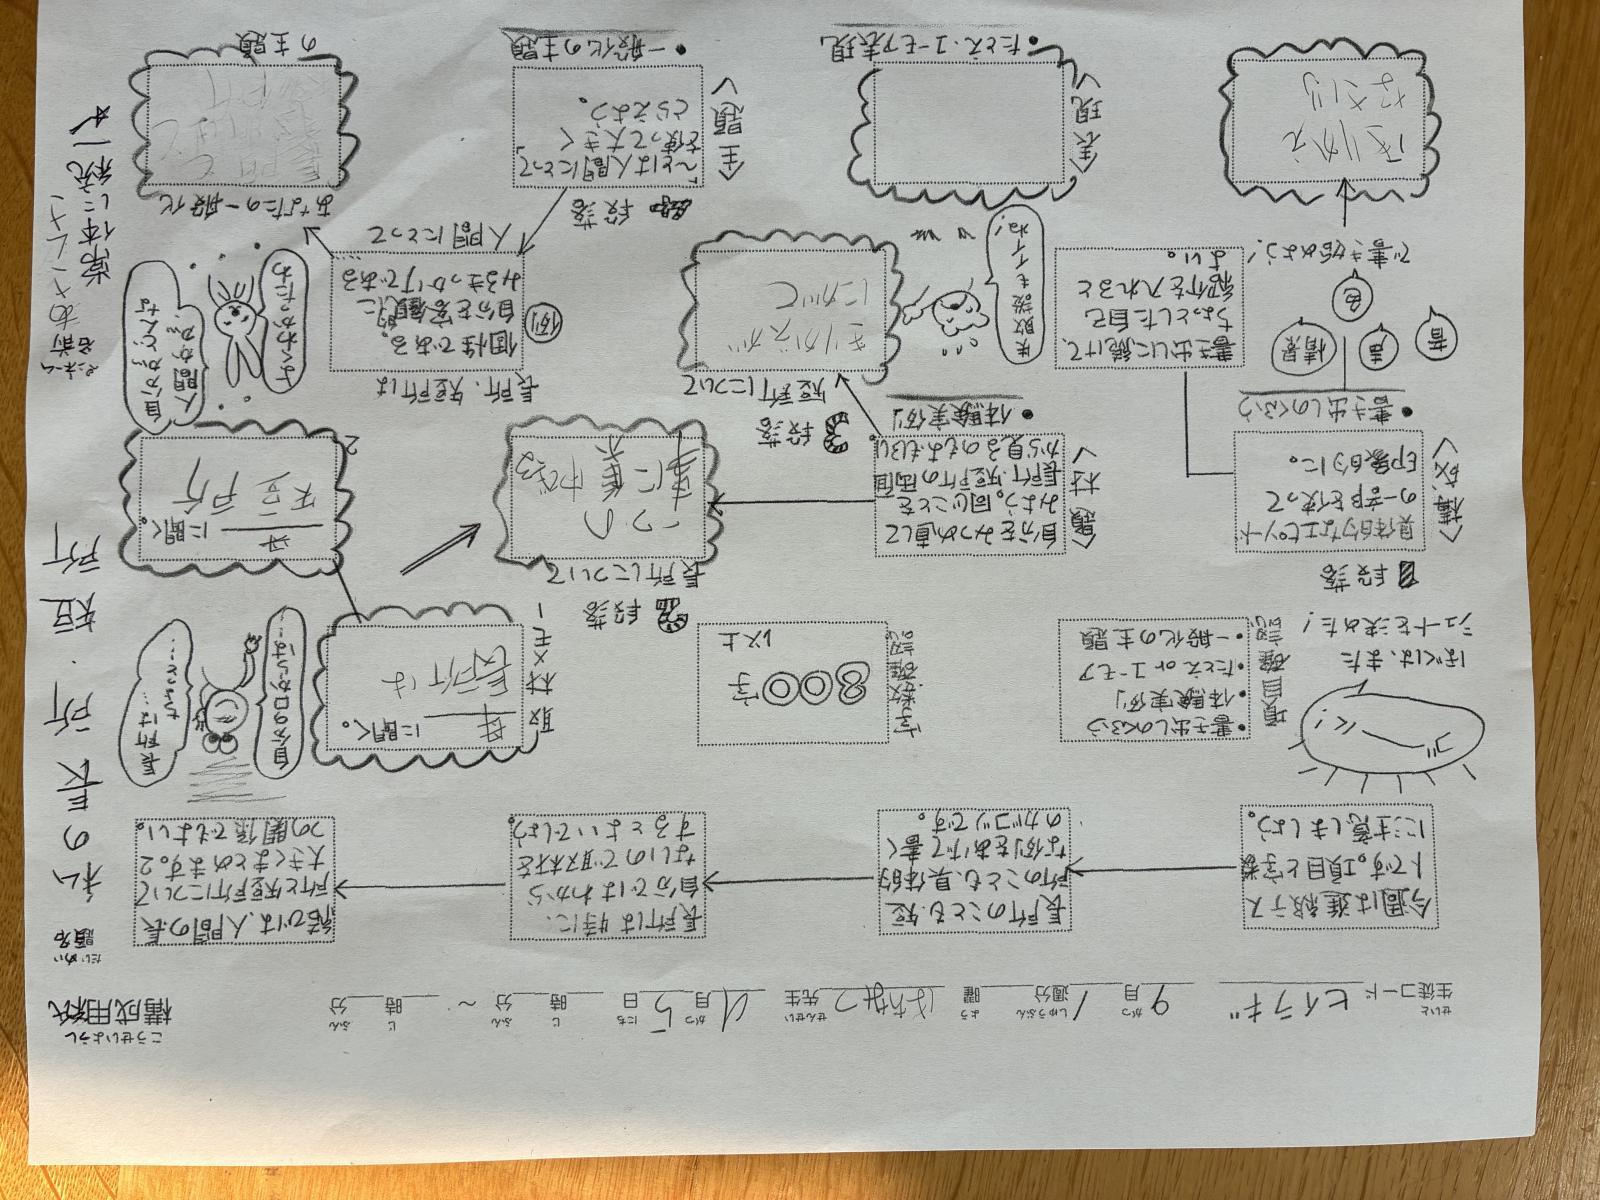 こうせいようし
構成用紙
せいと
生徒コード ヒイラギ
9月 1週分
がつ しゅうぶん
曜 はなみつ 先生
よう せんせい
月 5日
がつ にち
時 分 ～ 時 分
じ ふん じ ふん
だいめい
題名
私の長所・短所
ペンネーム
名前
常体に統一
今週は進級テス
トです。項目と字数
に注意しましょう。
長所のことも、短
所のことも、具体的
な例をあげて書く
のがコツです。
長所は特に、
自分ではわから
ないので取材を
するとよいでしょう。
結びは、人間の長
所と短所について
大きくまとめます。2
つの関係でもよい。
ぼくは、また
シュートを決めた！
項目確認
・書き出しのくふう
・体験実例
・たとえ or ユーモア
・一般化の主題
字数確認
800字
以上
取材メモ
母
に聞く。
長所は
自分の口からは…
長所は…
ちょっと…
に聞く。
短所
1段落
＜構成＞
具体的なエピソード
の一部を使って
印象的に。
・書き出しのくふう
情景
声
音
色
で書き始めよう！
書き出しに続けて、
ちょっとした自己
紹介を入れると
よい。
2段落
長所について
一つの
事に集
中できる
＜題材＞
自分をみつめ直して
みよう。同じことを
長所、短所の両面
から見るのもおもしろい
・体験実例
3段落
短所について
きりかえが
にがて
失敗談もイイね！
＜表現＞
・たとえ・ユーモア表現
4段落
＜主題＞
「～とは人間にとって」
を使って大きく
とらえよう。
・一般化の主題
人間にとって
長所、短所は
例
個性である。
自分を客観的に
みるきっかけである
よくわかったわ
自分がどんな
人間かが…
あなたの一般化
の主題